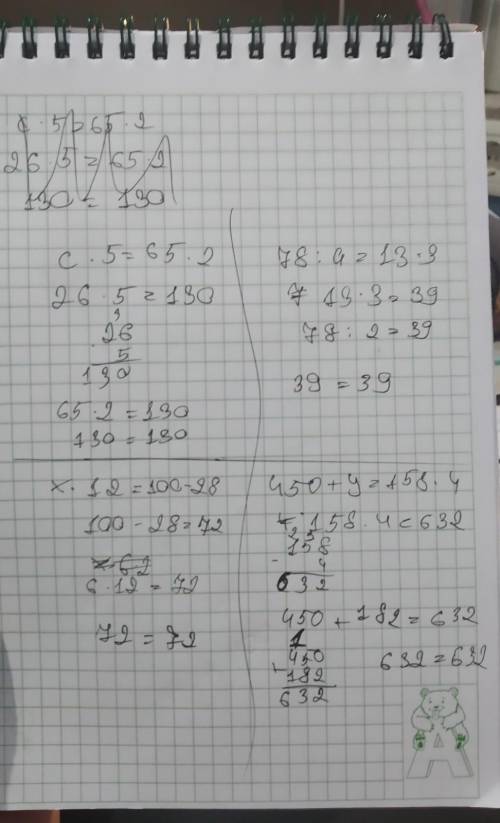 c · 5 = 65 · 2
26 · 5 = 65 · 2
130 = 130
c · 5 = 65 · 2
26 · 5 = 130
3
26
5
130
65 · 2 = 130
130 = 130
78 : a = 13 · 3
13 · 3 = 39
78 : 2 = 39
39 = 39
x · 12 = 100 - 28
100 - 28 = 72
6 · 12 = 72
72 = 72
450 + y = 158 · 4
158 · 4 = 632
23
158
4
632
450 + 182 = 632
1
450
+
182
632
632 = 632
A